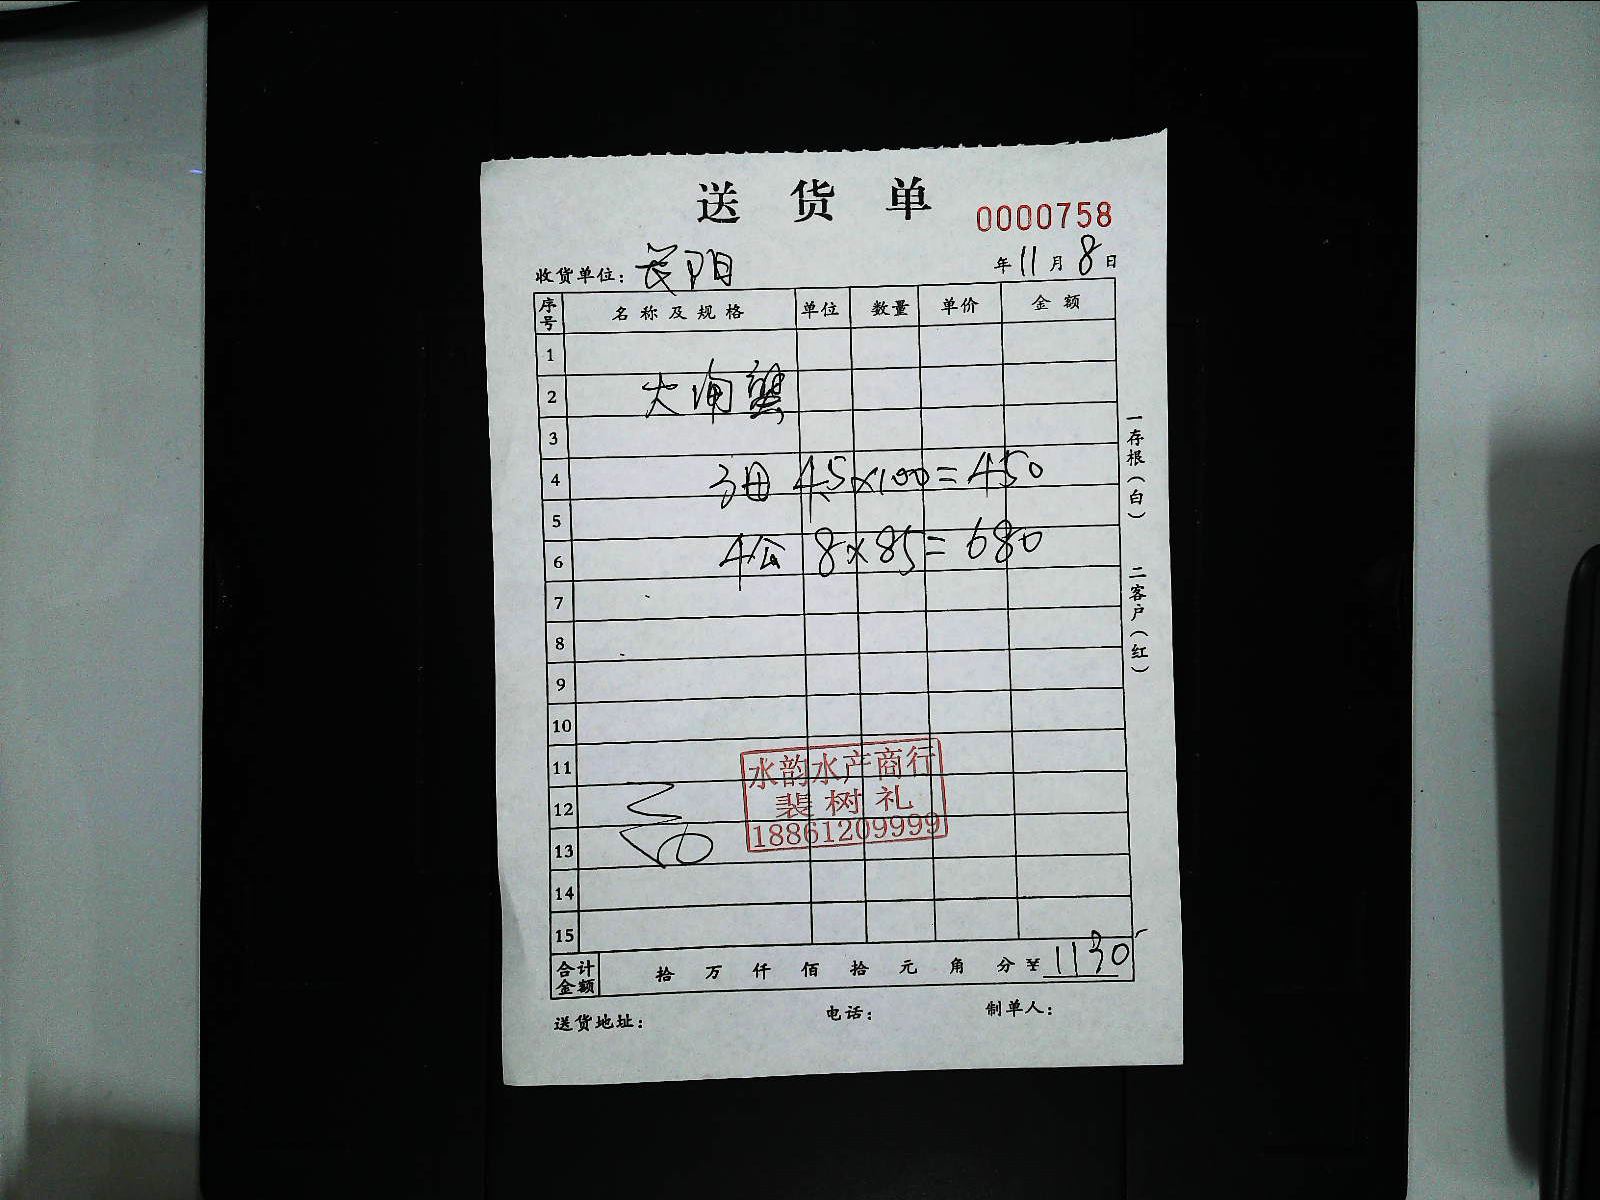 送货单
0000758
收货单位：长阳 年11月8日
序号 名称及规格 单位 数量 单价 金额
1
2 大闸蟹
3
4 3母 4.5×100=450
5
6 4公 8×85=680
7
8
9
10
11
12
13
14
15
水韵水产商行
裴树礼
18861209999
合计金额 拾 万 仟 佰 拾 元 角 分 ¥1130
送货地址： 电话： 制单人：
一存根（白）
二客户（红）